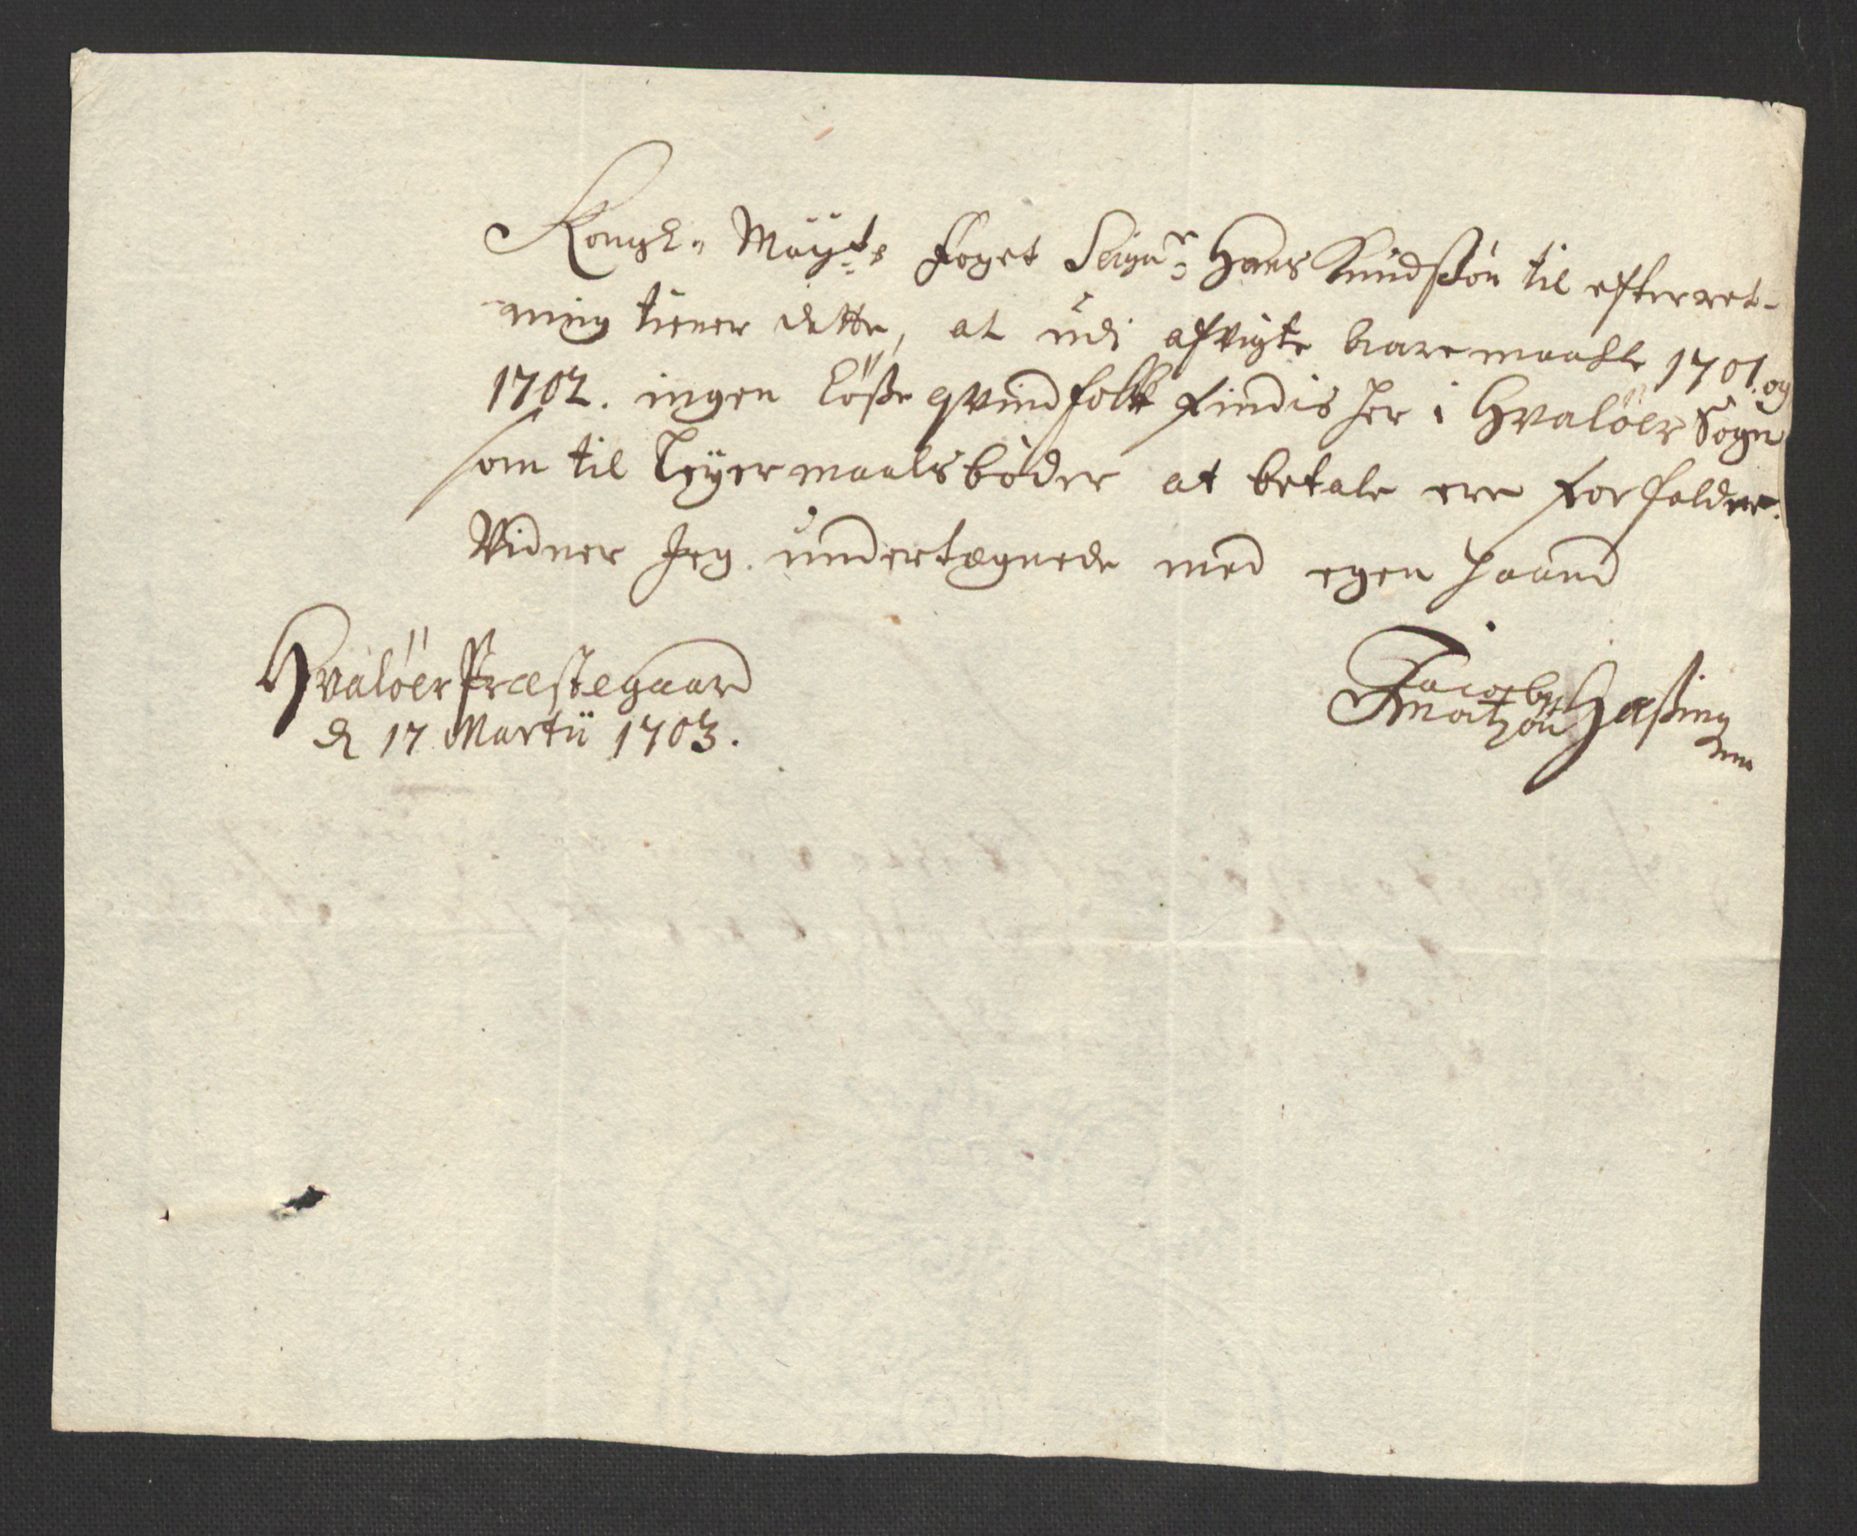 Kongl. Mayts. Foget Seignr. Hans Knudssøn til efterret-
ning tiener dette, at udi afvigte 1701. og
1702. ingen Løsse qvindfolk findis her i Hvaløer Sogn
som til Leyermaalsbøder at betale ere forfalden.
Vidner Jeg undertegnede med egen haand
Hvaløer Præstegaard
d 17 Martii 1703.
Jacob Hassing